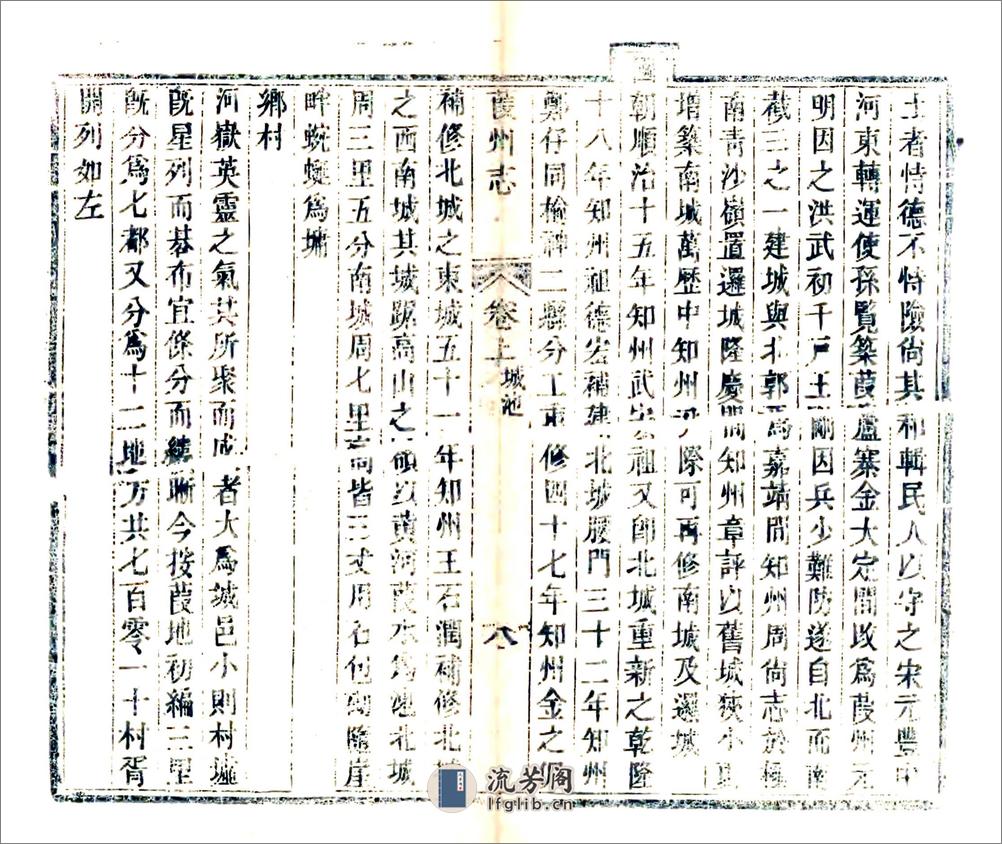 王者恃德不恃險尙其和輯民人以守之宋元豐中
河東轉運使孫覽築葭蘆寨金大定間改爲葭州元
明因之洪武初千戶王剛因兵少難防遂自北而南
截三之一建城與北郭爲嘉靖間知州周尙志於極
南青沙嶺置邏城隆慶間知州章評以舊城狹小
增築南城萬歷中知州 際可再修南城及邏城
國
朝順治十五年知州武 祖又卽北城重新之乾隆
十八年知州祖德宏補建北城腰門三十二年知州
鄭仔同榆神二縣分工 修四十七年知州金之
葭州志
卷上
城池
八
補修北城之東城五十一年知州王石潤補修北城
之西南城其城踞高山之嶺以黃河葭水爲池北城
周三里五分南城周七里 高皆三丈用石包砌隨崖
畔蜿蜒爲墉
鄉村
河嶽英靈之氣其所聚而成者大爲城邑小則村墟
旣星列而碁布宜條分而縷晰今按葭地初編三里
旣分爲七都又分爲十二地方共七百零一十村胥
開列如左
流芳阁
lfglib.cn